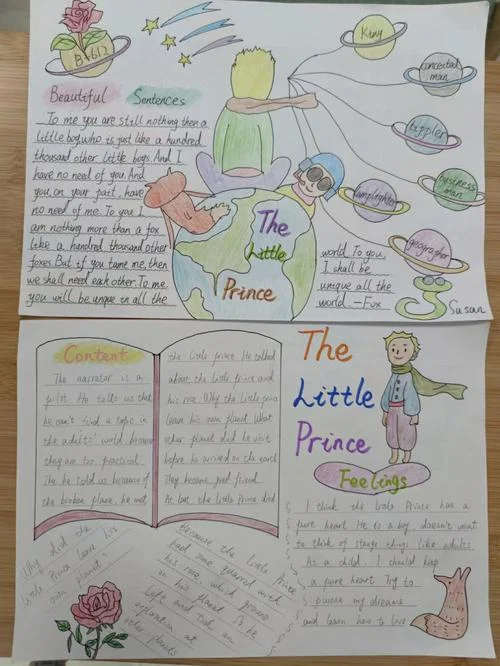 B-612
Beautiful Sentences
To me you are still nothing then a
little boy who is just like a hundred
thousand other little boys. And I
have no need of you. And
you, on your part, have
no need of me. To you I
am nothing more than a fox
like a hundred thousand other
foxes. But if you tame me, then
we shall need each other. To me
you will be unque in all the
world. To you,
I shall be
unique all the
world. — Fox
King
conceited
man
tippler
business
man
lamplighter
geographer
Susan
The
Little
Prince
Content
The narrator is a
pilot. He tells us that
he can't find a topic in
the adults' world because
they are too practical
The he told us because of
the broken plane, he met
the little prince. He talked
about the little prince and
his rose. Why the little prince
leave his own planet What
other planet did he visit
before he arrived on the earth
They became good friend
At last the little Prince died
Why did the
little Prince learn his
own planet?
Because the little Prince
had some quarrel with
his rose, which grows
in his planet So he
Left and take an
exploration at
other planets
The
Little
Prince
Feelings
I think the little Prince has a
pure heart He is a boy, doesn't want
to think of stange things like adults.
As a child, I should keep
a pure heart Try to
pursue my dreams
and learn how to love